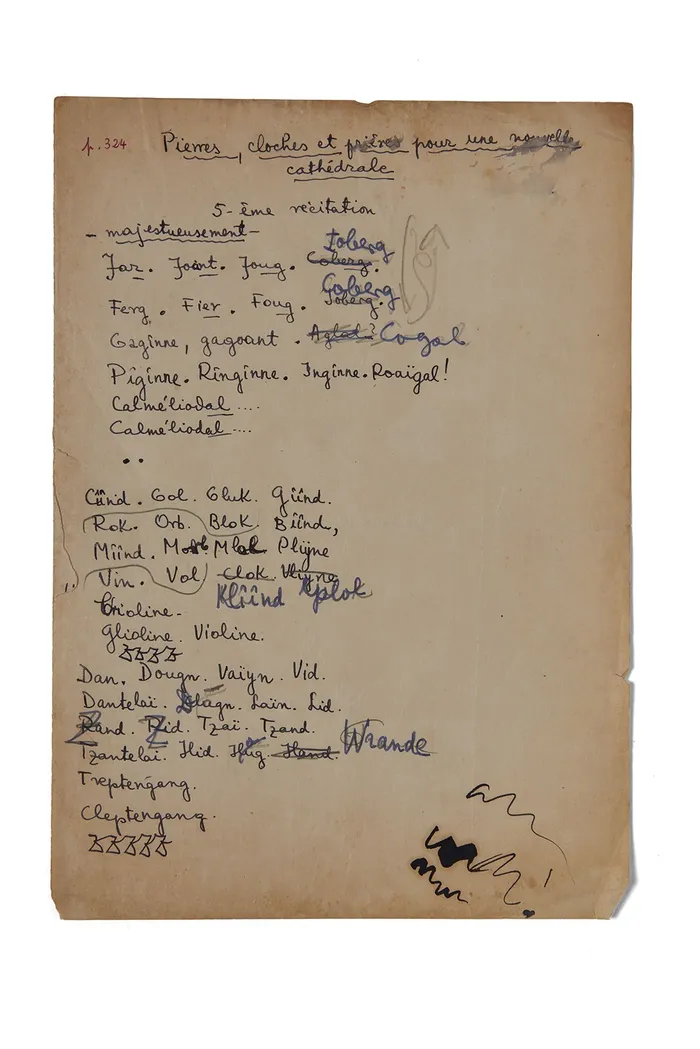 p. 324 Pierres, cloches et prières pour une nouvelle
cathédrale
5-ème récitation
- majestueusement -
Joberg
Jar. Joint. Joug. Coberg.
Coberg
Ferg. Fier. Foug. Joberg.
Gaginne, gagoant. Cogal
Piginne. Ringinne. Inginne. Roaïgal!
Calméliodal ....
Calméliodal ....
Gol. Gluk. Gîînd.
Rok. Orb. Blok. Bîînd,
Mîînd. Mlok Plijne
Vin. Vol Clok.
Klîînd
Glioline. Violine.
Dan. Dougn. Vaïyn. Vid.
Dantelaï. Laïn. Lid.
Zand. Zid. Tzaï. Tzand.
Tzantelaï. Hid. Hand. Wrande
Treptengang.
Cleptengang.